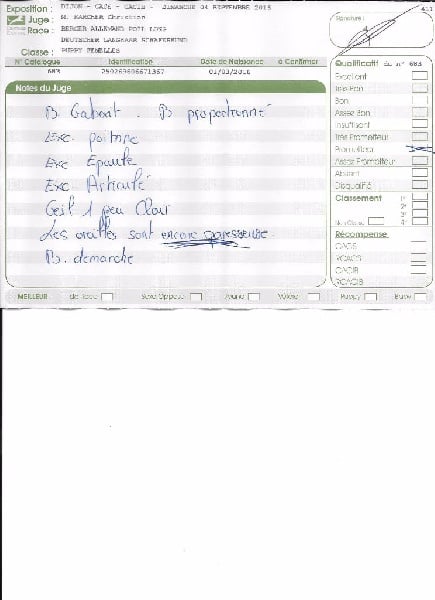 Exposition : DIJON - CACS - CACIB - DIMANCHE 04 SEPTEMBRE 2016
Juge : M. KARCHER Christian
Race : BERGER ALLEMAND POIL LONG
DEUTSCHER LANGHAAR SCHAFERHUND
Classe : PUPPY FEMELLES
N° Catalogue Identification Date de Naissance à Confirmer
683 250269606671367 01/03/2016
Notes du Juge
B. Gabarit. B proportionné
Exc. poitrine
Exc Epaule
Exc. Articulé
Oeil 1 peu Clair
Les oreilles sont encore
B. démarche
Signature :
Qualificatif du n° 683
Excellent
Très Bon
Bon
Assez Bon
Insuffisant
Très Prometteur
Prometteur
Assez Prometteur
Absent
Disqualifié
Classement 1°
2°
3°
Non Classé 4°
Récompense
CACS
RCACS
CACIB
RCACIB
MEILLEUR de Race Sexe Opposé Jeune Vétéran Puppy Baby